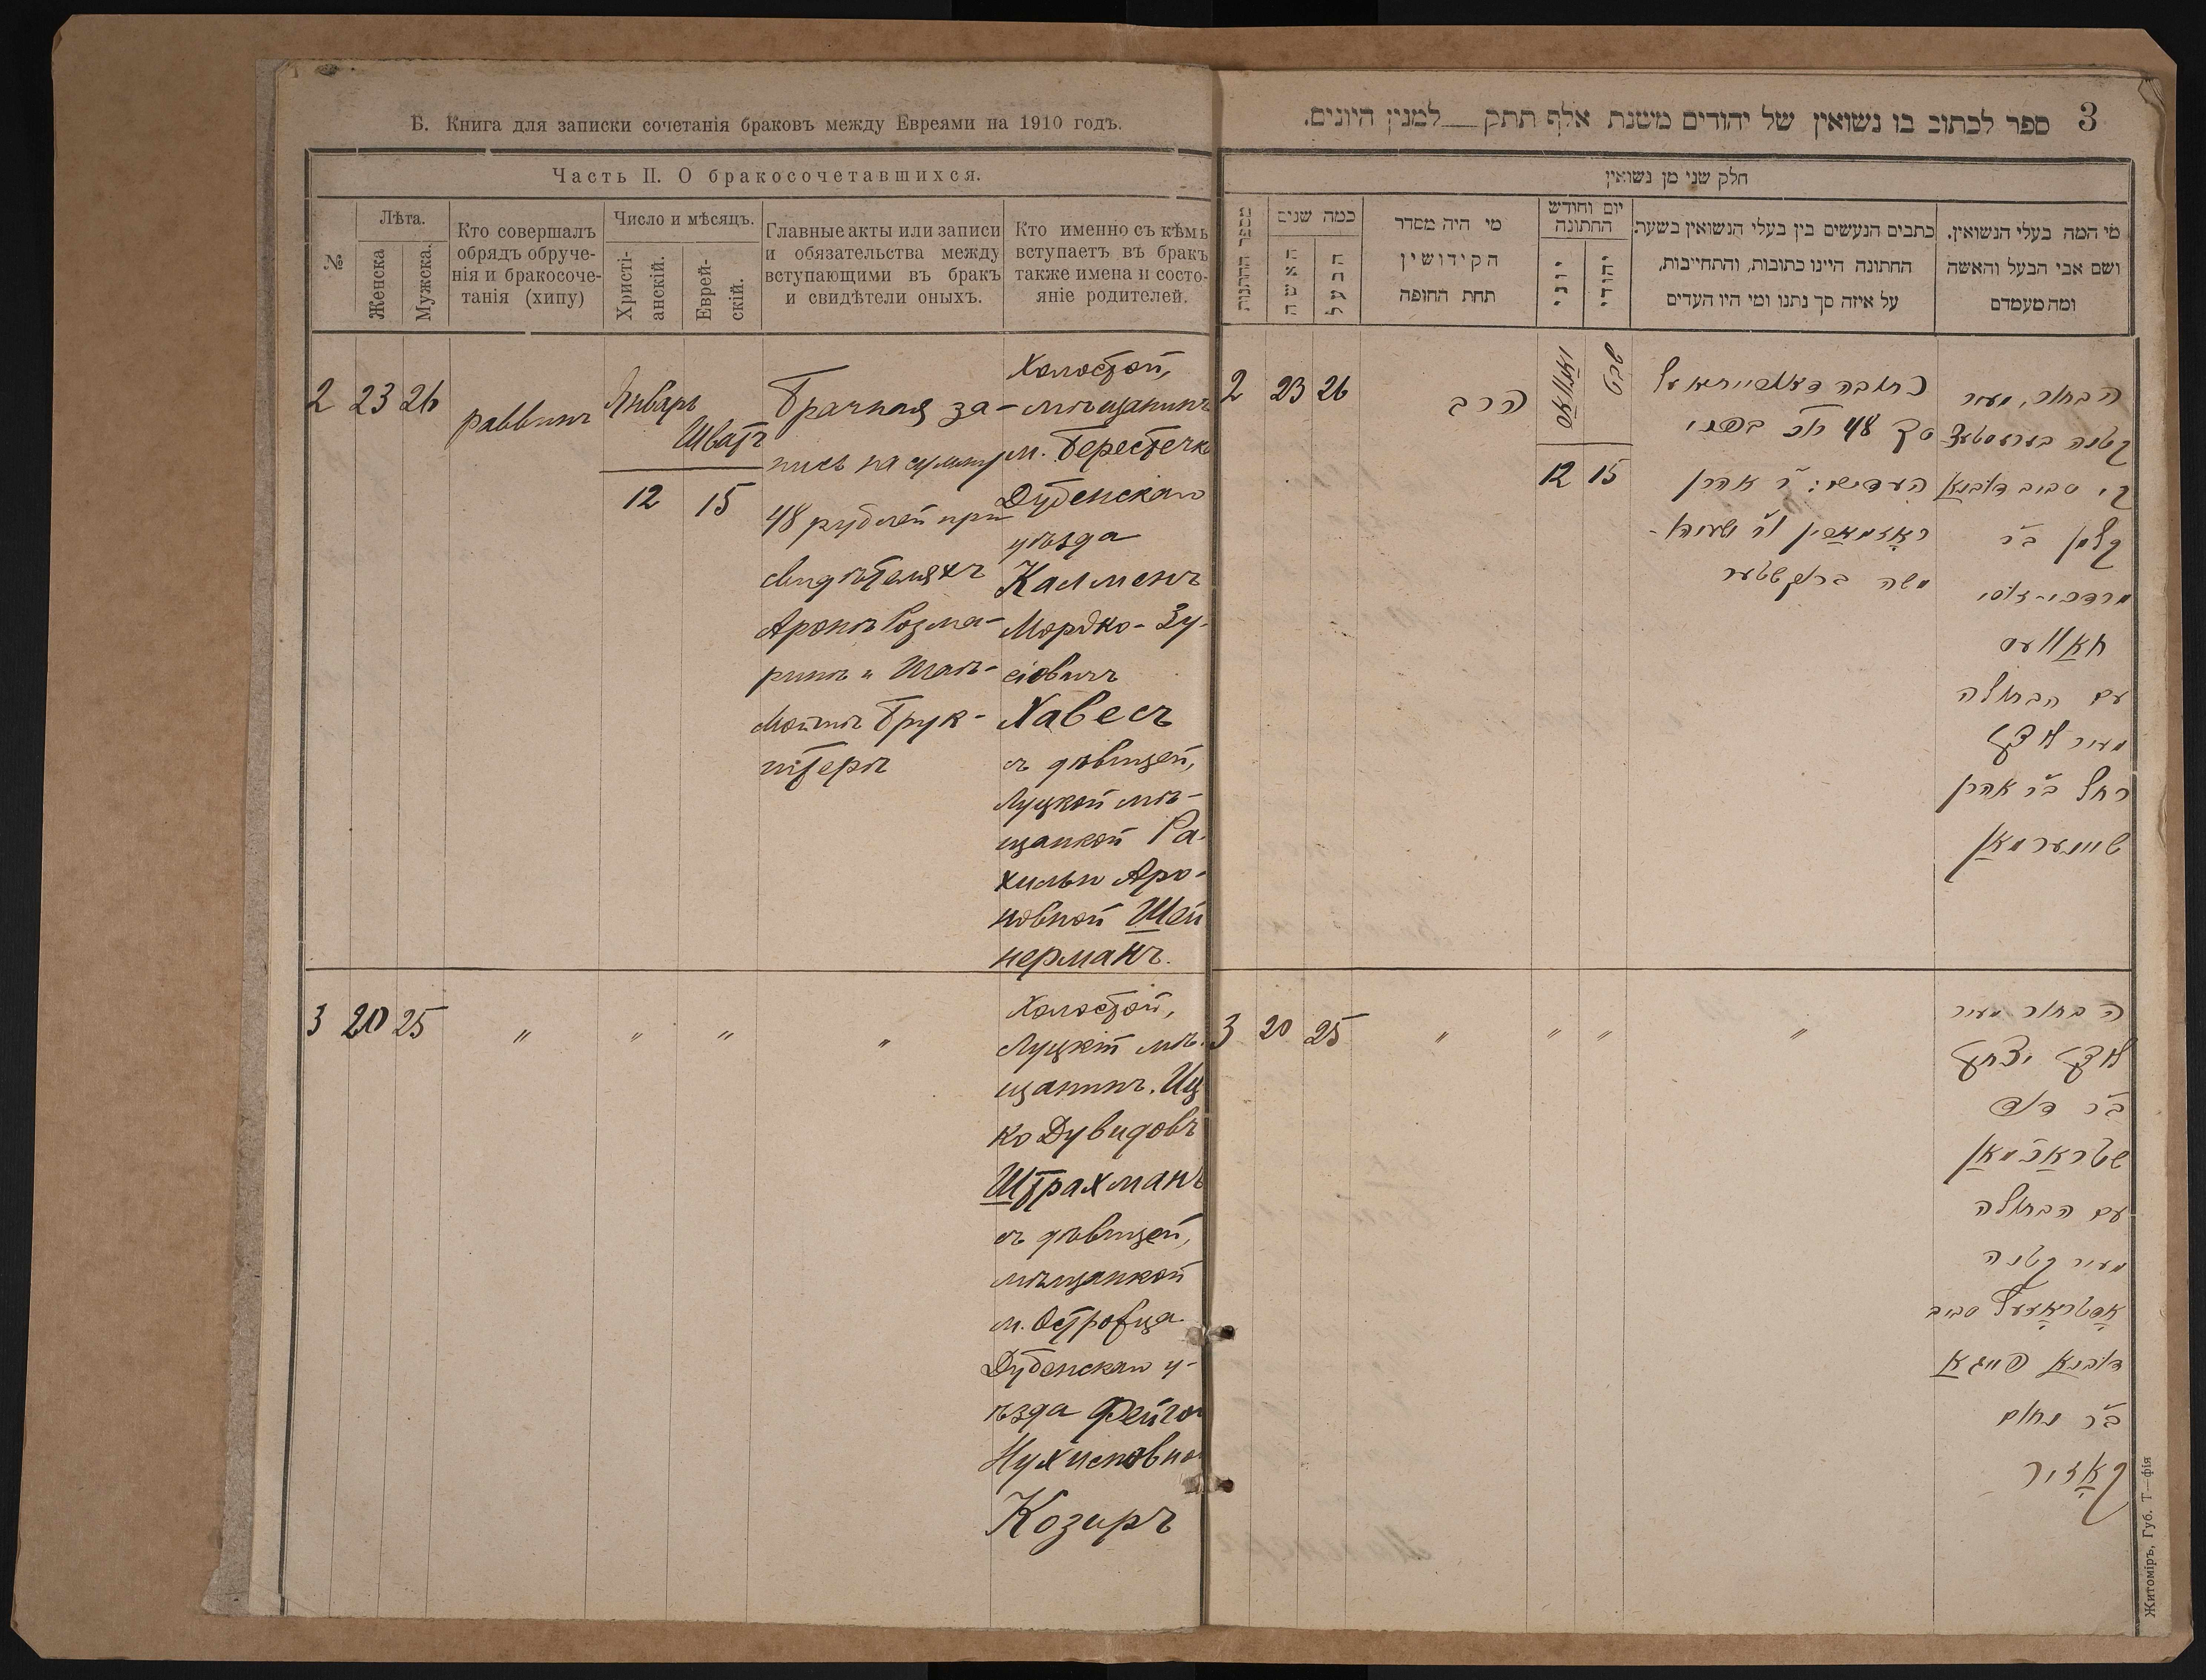 Б. Книга для записки сочетанія браковъ между Евреями на 1910 годъ.
Часть II. О бракосочетавшихся.
№
Лѣта.
Женска
Мужска.
Кто совершалъ
обрядъ обруче-
нія и бракосоче-
танія (хипу)
Число и мѣсяцъ.
Христі-
анскій.
Еврей-
скій.
Главные акты или записи
и обязательства между
вступающими въ бракъ
и свидѣтели оныхъ.
Кто именно съ кѣмъ
вступаетъ въ бракъ
также имена и состо-
яніе родителей.
2
23
26
раввинъ
Январь
Шватъ
12
15
Брачная за-
пись на сумму
48 рублей при
свидѣтеляхъ
Аронѣ Розма-
ринѣ и
Брук-
штерѣ
Холостой,
мѣщанинъ
м. Берестечко
Дубенскаго
уѣзда
Калменъ
Мордко-Зу-
сіовичъ
Хавесъ
съ дѣвицей,
Луцкой мѣ-
щанкой Ра-
хилью Аро-
новной Шей
нерманъ.
3
20
25
"
"
"
"
Холостой,
Луцкій мѣ-
щанинъ. Иц
ко Дувидовъ
Штрахманъ
съ дѣвицей,
мѣщанкой
м. Островца
Дубенскаго у-
ѣзда Фейгою
Нухимовною
Козиръ
3
ספר לכתוב בו נשואין של יהודים משנת אלף תתק__למנין היונים.
חלק שני מן נשואין
מספר החתונות
כמה שנים
האשה
הבעל
מי היה מסדר
הקידושין
תחת החופה
יום וחודש
החתונה
יוני
יהודי
כתבים הנעשים בין בעלי הנשואין בשעת
החתונה היינו כתובות, והתחייבות,
על איזה סך נתנו ומי היו העדים
מי המה בעלי הנשואין.
ושם אבי הבעל והאשה
ומה מעמדם
2
23
26
הרב
יאנואר
שבט
12
15
סך 48 רו״כ בפני
העדים: ר׳ אהרן
ראזמארין ור׳
משה ברוקשטער
הבחור, מעיר
קטנה בערעסטעצ
קי סביב דובנא
קלמן ב״ר
מרדכי-זוסי
חאוועס
עם הבתולה
מעיר לוצק
רחל ב״ר אהרן
שיינערמאן
3
20
25
"
"
"
"
הבחור מעיר
לוצק יצחק
ב״ר דוד
שטראכמאן
עם הבתולה
מעיר קטנה
סביב
דובנא פייגא
ב״ר נחום
קאזיר
Житоміръ, Губ. Т—фія